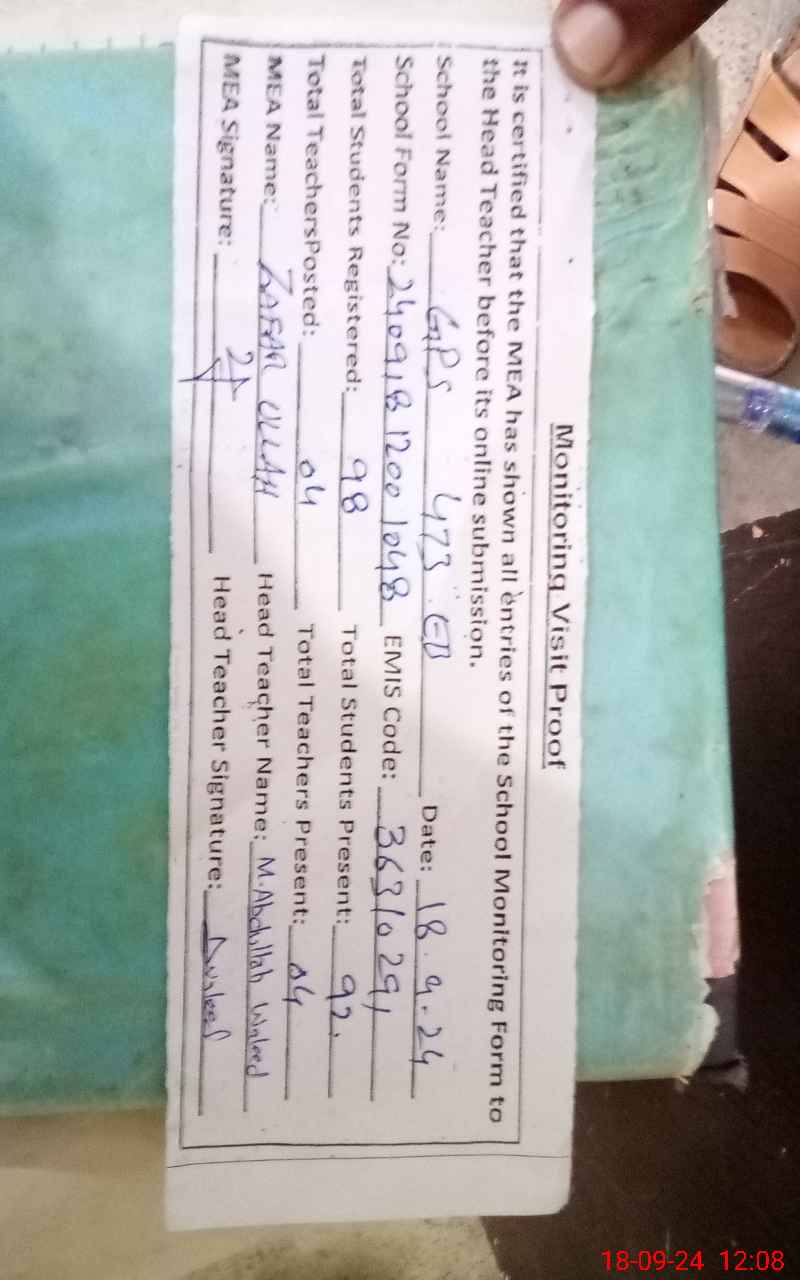 Monitoring Visit Proof
It is certified that the MEA has shown all entries of the School Monitoring Form to
the Head Teacher before its online submission.
School Name: GPS 473 EB Date: 18.9.24
School Form No: 24091812001048 EMIS Code: 36310291
Total Students Registered: 98 Total Students Present: 92
Total TeachersPosted: 04 Total Teachers Present: 04
MEA Name: ZAFAR ULLAH Head Teacher Name: M.Abdullah Waleed
MEA Signature: Head Teacher Signature:
18-09-24 12:08